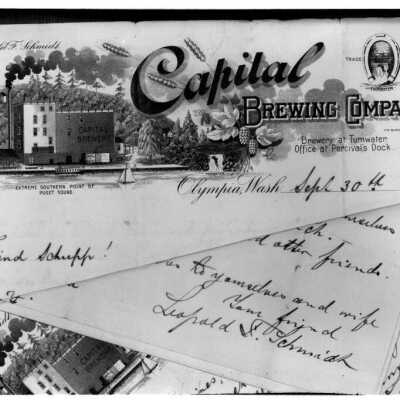 Capital
BREWING COMPA
TRADE
Brewery at Tumwater.
Office at Percivals Dock.
CAPITAL
BREWERY
EXTREME SOUTHERN POINT OF
PUGET SOUND.
Olympia, Wash Sept 30th
Schupp!
other friends.
to yourselves and wife
Your friend
Leopold F. Schmidt